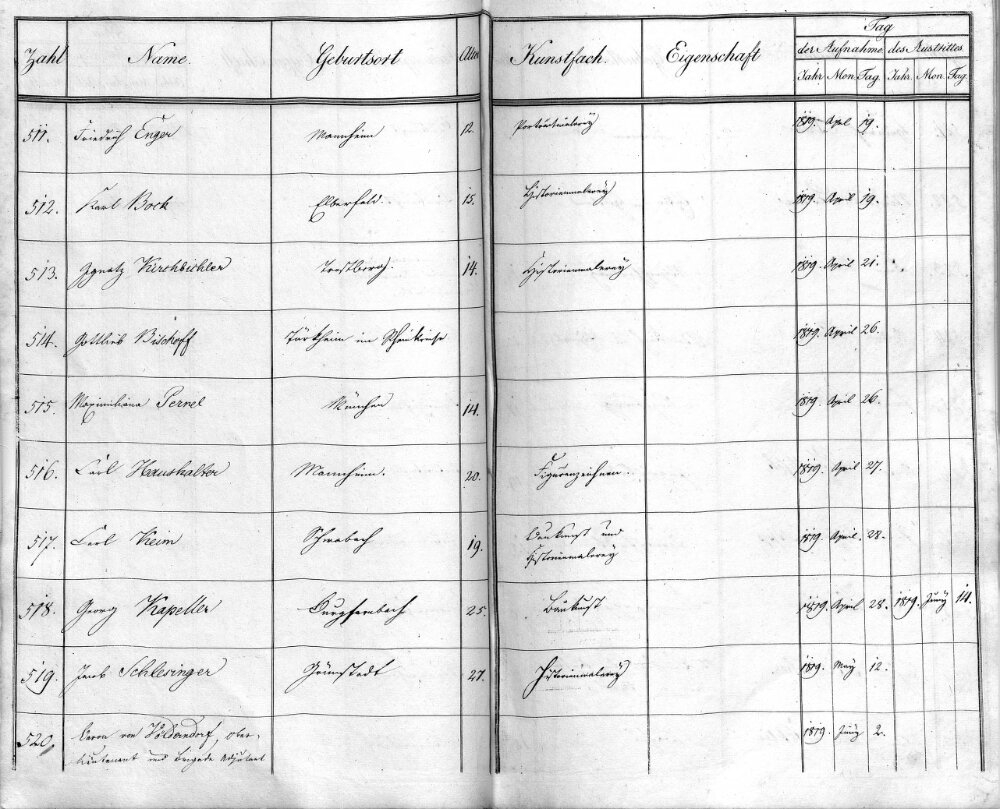 Zahl Name. Geburtsort Alter Kunstfach Eigenschaft Tag
der Aufnahme des Austrittes
Jahr Mon. Tag. Jahr. Mon. Tag.
511. Friedrich Enger Mannheim 12. Porträtmalerey 1819. April 19.
512. Karl Bock Elberfeld. 15. Historienmalerey 1819. April 19.
513. Ignatz Kirchbichler Trostberg. 14. Historienmalerey 1819. April 21.
514. Gottlieb Bischoff Türkheim im Rheinkreise 1819. April 26.
515. Maximiliana Pernel München 14. 1819. April 26.
516. Carl Haushalter Mannheim. 20. Figurenzeichnen. 1819. April 27.
517. Carl Keim Schwabach 19. Baukunst und
Historienmalerey 1819. April. 28.
518. Georg Kapeller 25. Baukunst 1819. April 28. 1819. Juny 14.
519. Jacob Schlesinger Grünstadt 27. Historienmalerey 1819. May 12.
520. Baron von Völderndorf, Ober-
lieutenant und Brigade Adjutant 1819. Juny 2.